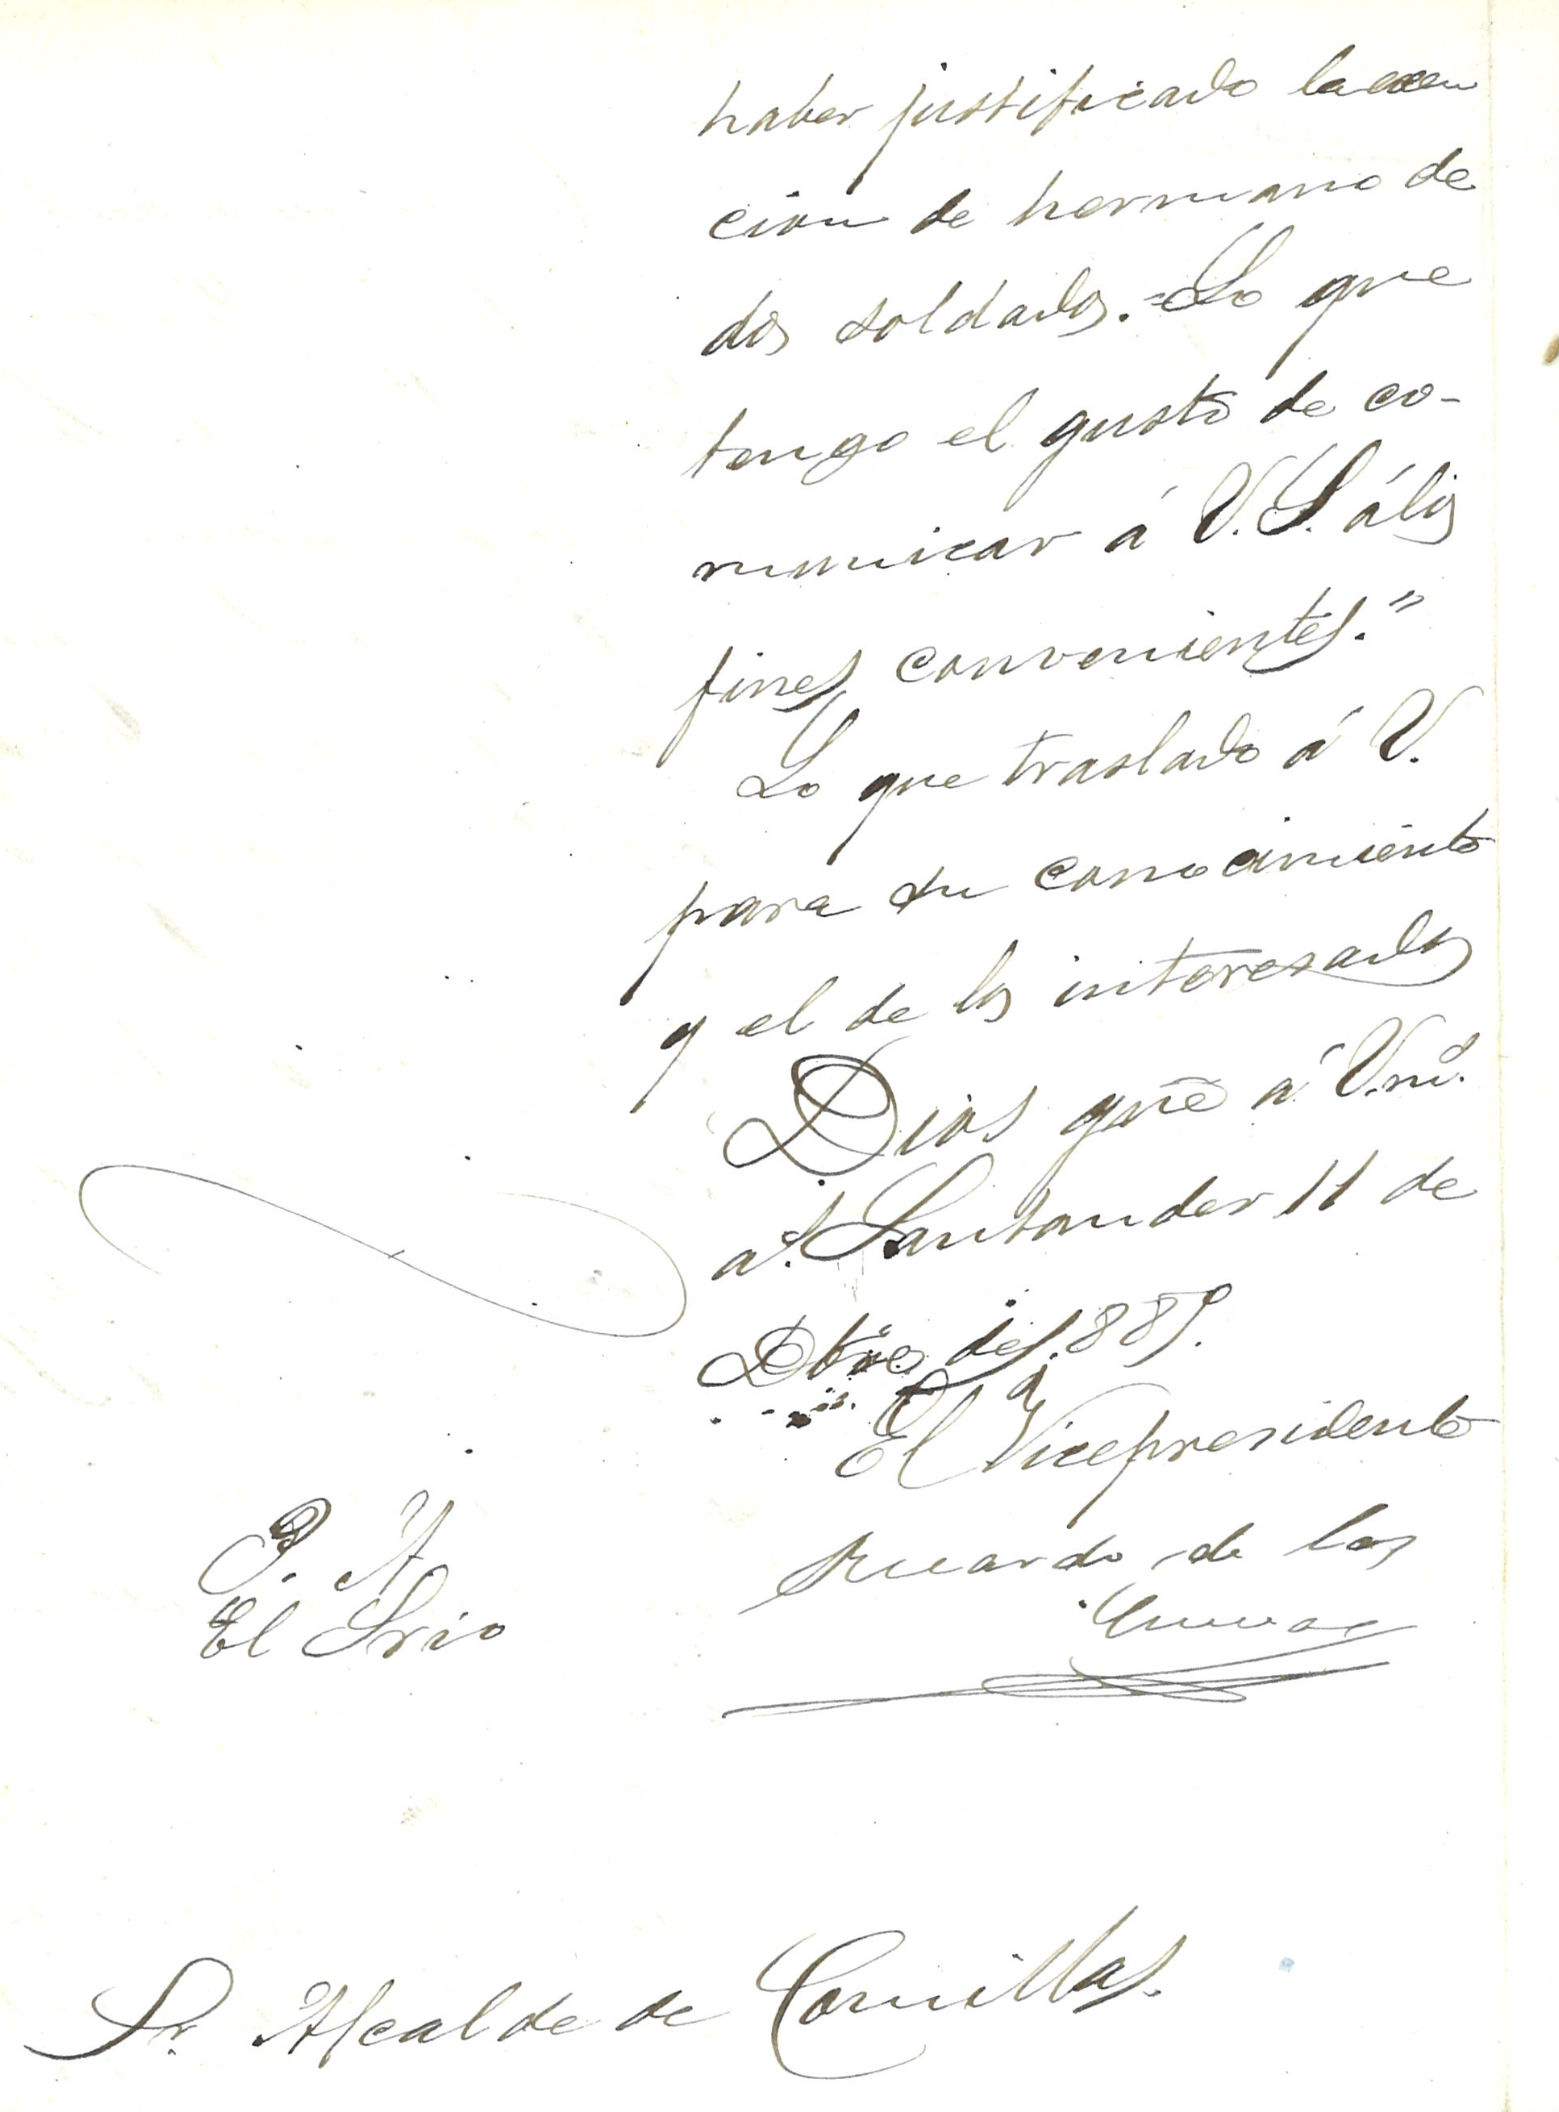 haber justificado la exen
cion de hermano de
dos soldados.=Lo que
tengo el gusto de co-
municar á V. S. álos
fines convenientes."
Lo que traslado á V.
para su conocimiento
y el de los interesados
Dios gue á Vm.
as. Santander 11 de
Dbre de 1.889.
El Vicepresidente
Ricardo de las
Cuevas
P. A
El Srio
Sr. Alcalde de Comillas.